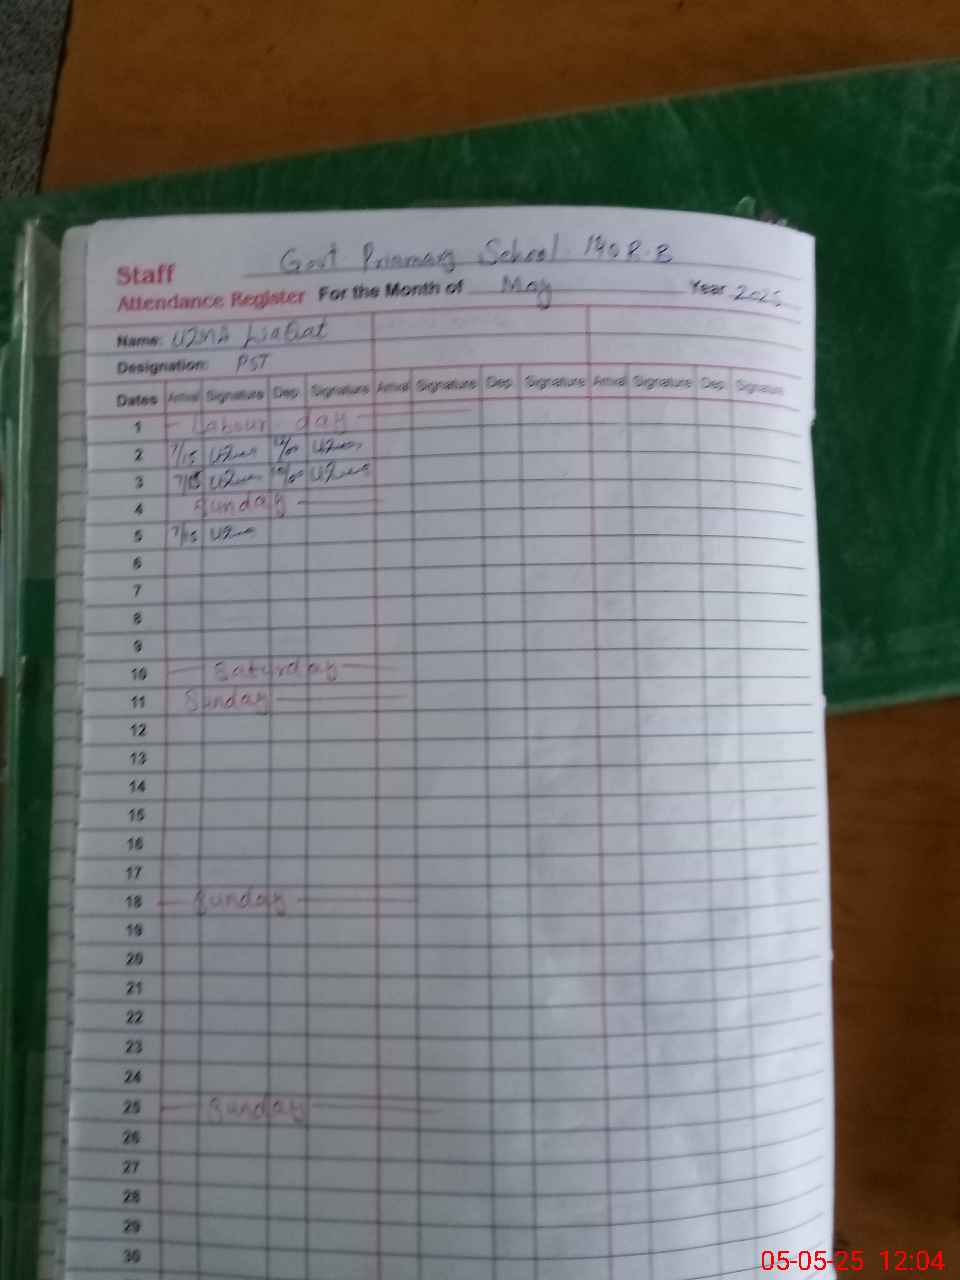 Staff
Govt Primary School 190 R.B
Attendance Register For the Month of May Year 2025
Name: UZMA LiaQat
Designation: PST
Dates Arrival Signature Dep. Signature Arrival Signature Dep. Signature Arrival Signature Dep. Signature
1 Labour day
2 7/15 Uzma Uzma
3 7/15 Uzma Uzma
4 Sunday
5 7/15 Uzma
6
7
8
9
10 Saturday
11 Sunday
12
13
14
15
16
17
18 Sunday
19
20
21
22
23
24
25 Sunday
26
27
28
29
30
05-05-25 12:04